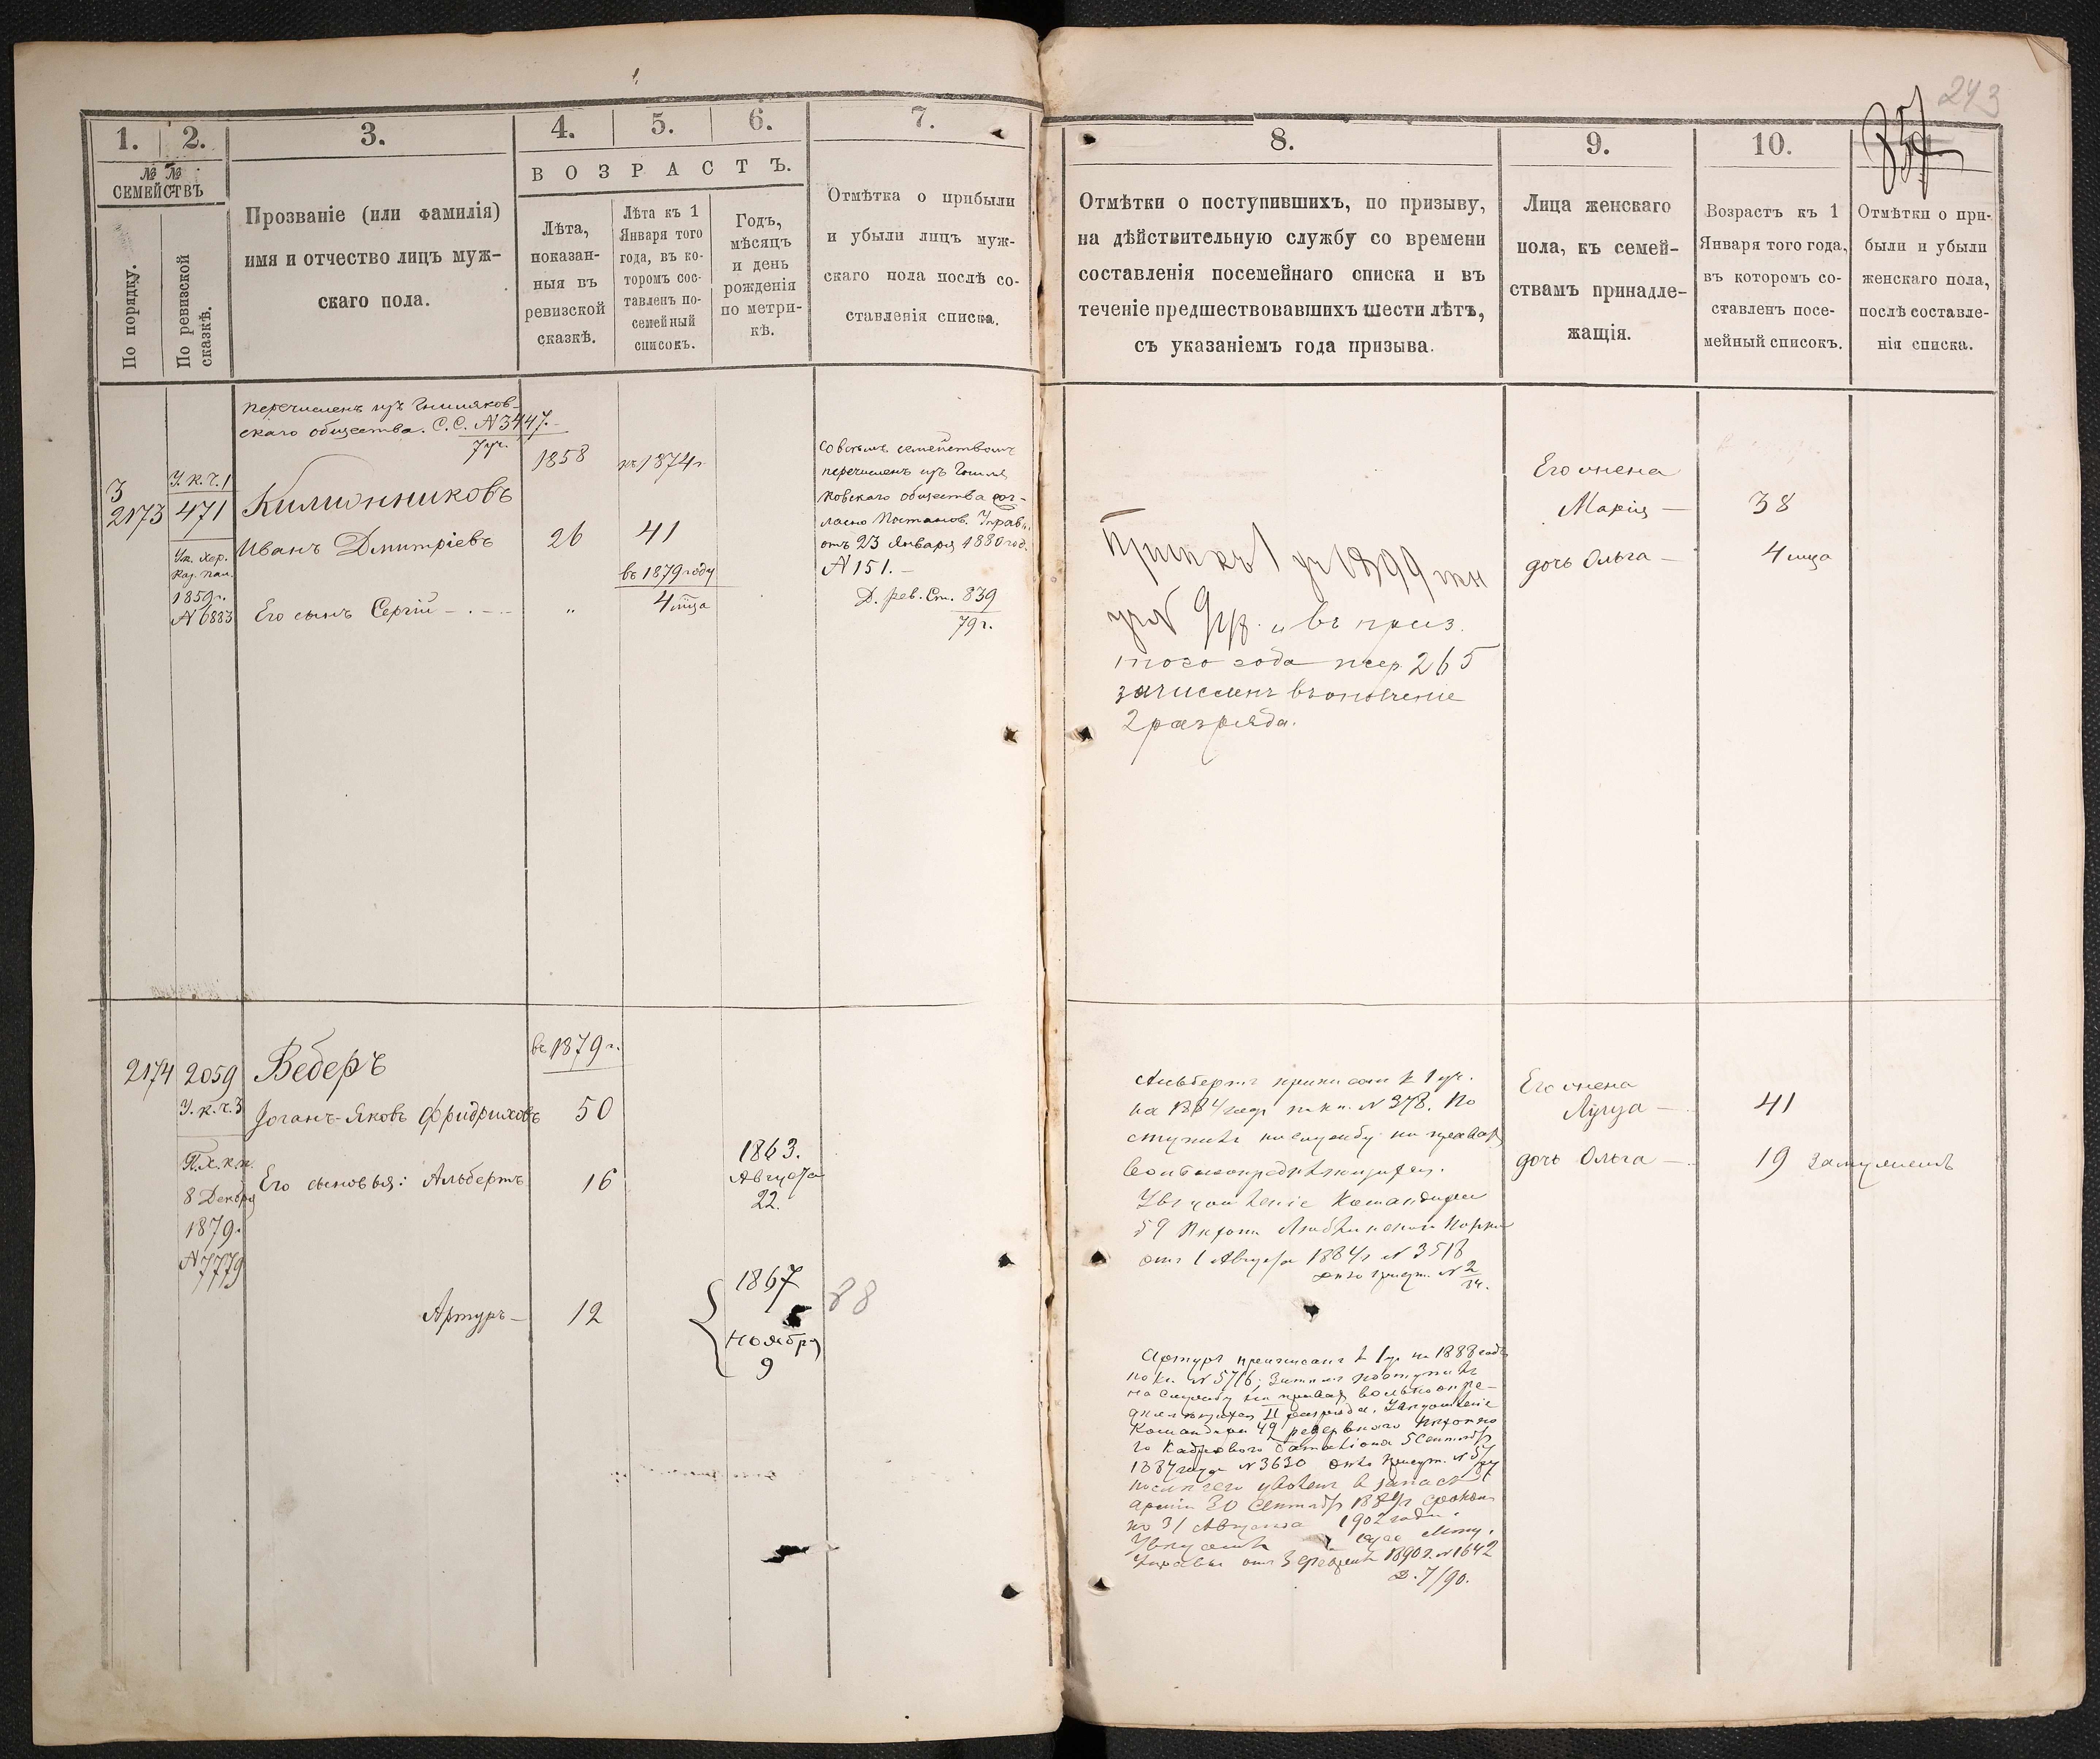 243
357
1. 2. 3. 4. 5. 6. 7.
№ № СЕМЕЙСТВЪ
По порядку.
По ревизской сказкѣ.
Прозваніе (или фамилія)
имя и отчество лицъ муж-
скаго пола.
ВОЗРАСТЪ.
Лѣта,
показан-
ныя въ
ревизской
сказкѣ.
Лѣта къ 1
Января того
года, въ ко-
торомъ сос-
тавленъ по-
семейный
списокъ.
Годъ,
мѣсяцъ
и день
рожденія
по метри-
кѣ.
Отмѣтка о прибыли
и убыли лицъ муж-
скаго пола послѣ со-
ставленія списка.
8. 9. 10.
Отмѣтки о поступившихъ, по призыву,
на дѣйствительную службу со времени
составленія посемейнаго списка и въ
теченіе предшествовавшихъ шести лѣтъ,
съ указаніемъ года призыва.
Лица женскаго
пола, къ семей-
ствамъ принадле-
жащія.
Возрастъ къ 1
Января того года,
въ которомъ со-
ставленъ посе-
мейный списокъ.
Отмѣтки о при-
были и убыли
женскаго пола,
послѣ составле-
нія списка.
перечисленъ изъ Гниляков-
скаго общества. С.С. № 3447.
3
2173
У.к.ч.1
471
Ук. Хер.
Каз. пал.
1859г.
№ 6883
Килионниковъ
Иванъ Дмитріевъ
Его сынъ Сергій
1858
26
"
къ 1874г
41
въ 1879 году
4 мца
со всѣмъ семействомъ
перечисленъ изъ Гниля
ковскаго общества сог-
ласно Постанов. Управы
отъ 23 Января 1880 год.
№ 151.
Д. рев. Ст. 839
79г.
1899
и въ приз.
того года жер. 265
зачисленъ въ ополченіе
2 разряда.
Его жена
Марія
38
дочь Ольга
4 мца
2174
2059
У.к.ч.3
П.Х.к.п.
8 Декабря
1879г.
№ 7779
Веберъ
Іоганъ-Яковъ Фридриховъ
Его сыновья: Альбертъ
Артуръ
въ 1879г.
50
16
12
1863.
Августа
22.
1867
Ноября
9
88
Альбертъ приписан къ 1 уч.
на 1884 годъ по кн. № 378. По
ступилъ на службу на правахъ
вольноопредѣляющагося.
Увѣдомленіе Командира
59 Пѣхотн. Люблинскаго Полка
отъ 1 Августа 1884г № 3518
Артуръ приписанъ къ 1 уч на 1888 годъ
по кн. № 576;
на службу на правах вольноопре-
дѣляющагося II разряда. Увѣдомленіе
Командира 49 резервнаго Пѣхотна
го Кадроваго баталіона 5 Сентября
1887 года № 3630
уволенъ въ запасъ
арміи 30 Сентября
по 31 Августа 1902 года.
Управы отъ 1890г. № 1642
Д. 7/90.
Его жена
Луиза
41
дочь Ольга
19
замужемъ